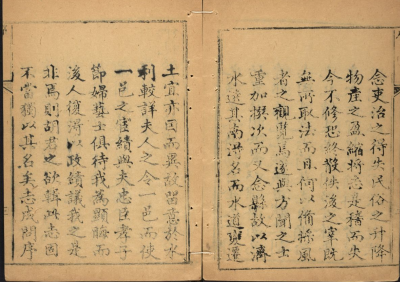 念吏治之得失民俗之升降
物產之盈縮將志是稽而失
今不修恐終散佚後之宰既
無所取法而且何以備採風
者之觀覽焉遂與方聞之士
重加撰次而又念縣數以濟
水遶其南得名而水道遷
土宜亦因而異故留意於水
利較詳夫人之令一邑而使
一邑之實績與夫忠臣孝子
節婦義士俱待我為顯晦而
後人復得以政績議我之是
非焉則胡君之欲輯此志固
不當獨以其名美志成問序